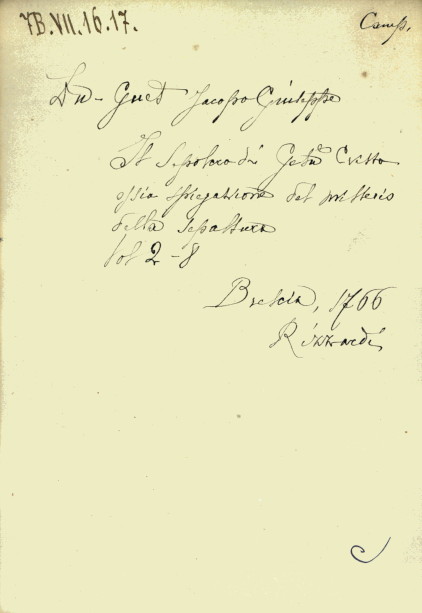 7B.VII.16.17.
Camp.
Du-Guet Jacopo Giuseppe
Il Sepolcro di Gesù Cristo
ossia spiegazione del misterio
della sepoltura
Vol 2 - 8
Brescia, 1766
Rizzardi